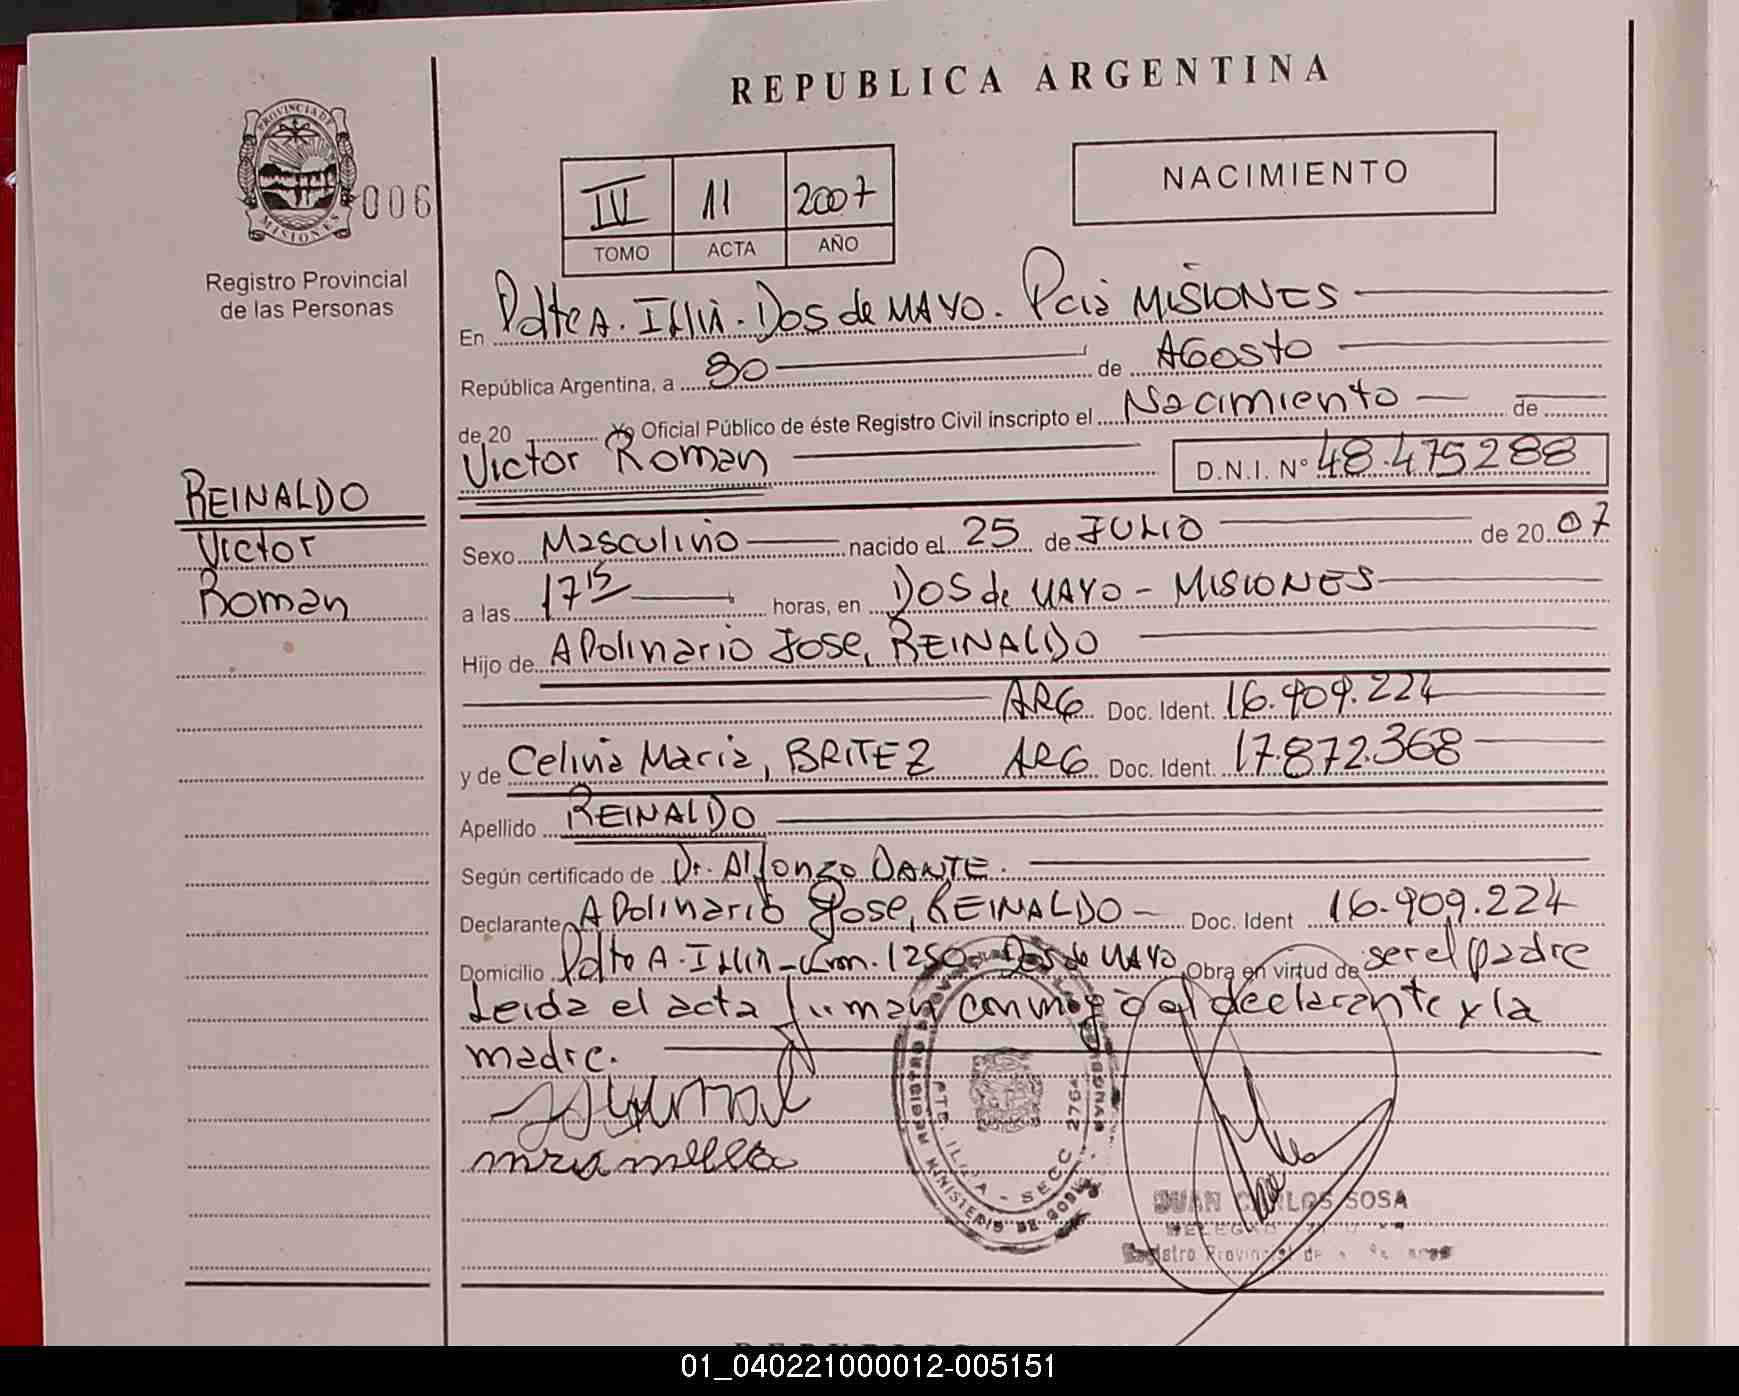 REPUBLICA ARGENTINA
PROVINCIA DE
MISIONES
006
Registro Provincial
de las Personas
IV 11 2007
TOMO ACTA AÑO
NACIMIENTO
En Pdte A. Illia. Dos de MAYO. Pcia MISIONES
República Argentina, a 30 de AGosto
de 20 Yo Oficial Público de éste Registro Civil inscripto el Nacimiento de
Victor Roman D.N.I. N° 48.475288
REINALDO
Victor
Roman
Sexo Masculino nacido el 25 de JULIO de 20 07
a las 17 15 horas, en DOS de MAYO - MISIONES
Hijo de Apolinario Jose, REINALDO
ARG Doc. Ident. 16.909.224
y de Celina Maria, BRITEZ ARG Doc. Ident. 17.872.368
Apellido REINALDO
Según certificado de Dr. Alfonzo DANTE.
Declarante Apolinario Jose, REINALDO Doc. Ident 16.909.224
Domicilio Pdte A. Illia - Km. 1250 Dos de MAYO Obra en virtud de ser el padre
Leida el acta firman conmigo el declarante y la
madre.
PTE. ILLIA - SECC 2764
MINISTERIO DE GOB
JUAN CARLOS SOSA
Registro Provincial de
01_040221000012-005151